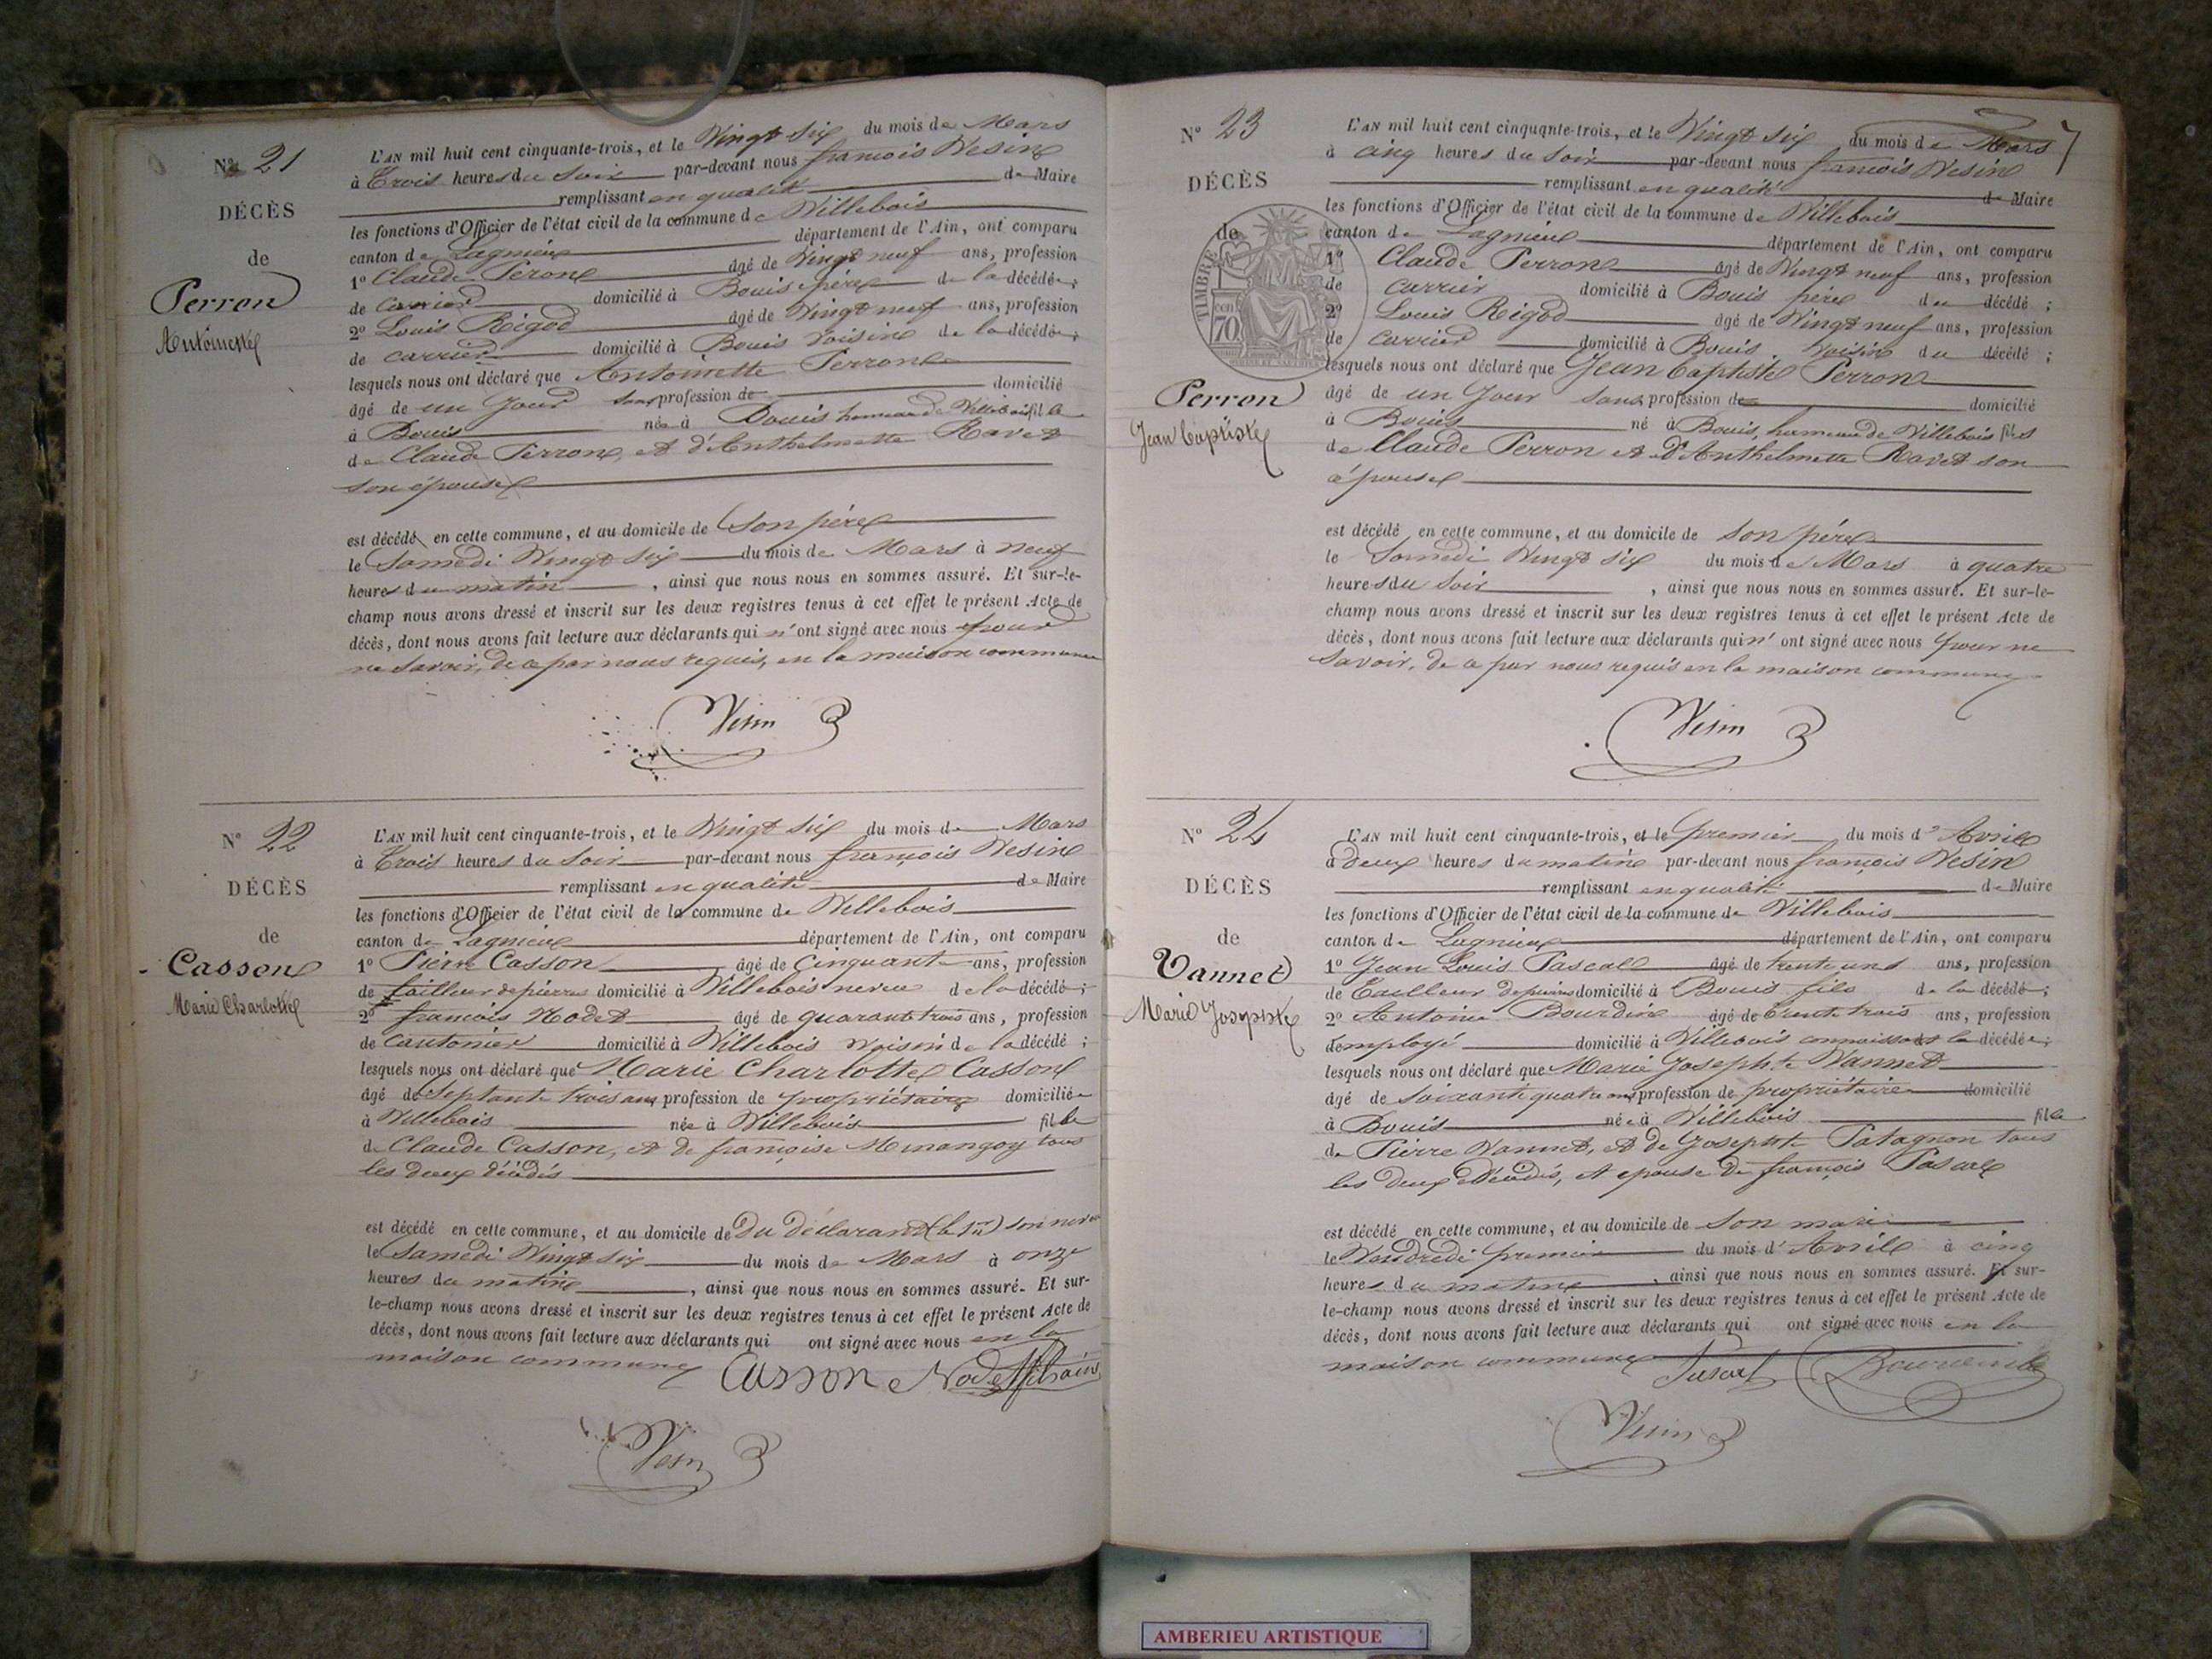 Nº 21
DÉCÈS
de
Perron
Antoinette
L'AN mil huit cent cinquante-trois, et le Vingt six du mois de Mars
à Trois heures du Soir par-devant nous françois Vesin
remplissant en qualité de Maire
les fonctions d'Officier de l'état civil de la commune de Villebois
canton de Lagnieu département de l'Ain, ont comparu
1º Claude Perron âgé de Vingt neuf ans, profession
de Carrier domicilié à Bouis père de la décédée;
2º Louis Rigod âgé de Vingt neuf ans, profession
de carrier domicilié à Bouis Voisin de la décédée;
lesquels nous ont déclaré que Antoinette Perron
âgé de un Jour sans profession de domicilié
à Bouis née à Bouis hameau de Villebois fille
de Claude Perron, et d'Anthelmette Ravet
son épouse
est décédé en cette commune, et au domicile de Son père
le Samedi Vingt six du mois de Mars à neuf
heures du matin, ainsi que nous nous en sommes assuré. Et sur-le-
champ nous avons dressé et inscrit sur les deux registres tenus à cet effet le présent Acte de
décès, dont nous avons fait lecture aux déclarants qui n'ont signé avec nous pour
ne Savoir, de ce par nous requis, en la maison commune
Vesin
Nº 22
DÉCÈS
de
Casson
Marie Charlotte
L'AN mil huit cent cinquante-trois, et le Vingt six du mois de Mars
à Trois heures du Soir par-devant nous françois Vesin
remplissant en qualité de Maire
les fonctions d'Officier de l'état civil de la commune de Villebois
canton de Lagnieu département de l'Ain, ont comparu
1º Pierre Casson âgé de Cinquante ans, profession
de tailleur de pierres domicilié à Villebois neveu de la décédée;
2º françois Nodet âgé de quarante trois ans, profession
de Cantonier domicilié à Villebois voisin de la décédé;
lesquels nous ont déclaré que Marie Charlotte Casson
âgé de Septante trois ans profession de propriétaire domiciliée
à Villebois née à Villebois fille
de Claude Casson, et de françoise Minangoy tous
les deux décédés
est décédé en cette commune, et au domicile de Du déclarant (le 1er) son neveu
le Samedi Vingt six du mois de Mars à onze
heures du matin, ainsi que nous nous en sommes assuré. Et sur-
le-champ nous avons dressé et inscrit sur les deux registres tenus à cet effet le présent Acte de
décès, dont nous avons fait lecture aux déclarants qui ont signé avec nous en la
maison commune Casson Nodet
Vesin
Nº 23
DÉCÈS
de
TIMBRE
70 cen
Perron
Jean Baptiste
7
L'AN mil huit cent cinquante-trois, et le Vingt six du mois de Mars
à cinq heures du Soir par-devant nous françois Vesin
remplissant en qualité de Maire
les fonctions d'Officier de l'état civil de la commune de Villebois
canton de Lagnieu département de l'Ain, ont comparu
1º Claude Perron âgé de Vingt neuf ans, profession
de carrier domicilié à Bouis père du décédé;
2º Louis Rigod âgé de Vingt neuf ans, profession
de Carrier domicilié à Bouis Voisin du décédé;
lesquels nous ont déclaré que Jean Baptiste Perron
âgé de un Jour sans profession de domicilié
à Bouis né à Bouis, hameau de Villebois fils
de Claude Perron et d'Anthelmette Ravet son
épouse
est décédé en cette commune, et au domicile de son père
le Samedi Vingt six du mois de Mars à quatre
heures du Soir, ainsi que nous nous en sommes assuré. Et sur-le-
champ nous avons dressé et inscrit sur les deux registres tenus à cet effet le présent Acte de
décès, dont nous avons fait lecture aux déclarants qui n'ont signé avec nous pour ne
Savoir, de ce par nous requis en la maison commune
Vesin
Nº 24
DÉCÈS
de
Vannet
Marie Josephte
L'AN mil huit cent cinquante-trois, et le premier du mois d'Avril
à deux heures du matin par-devant nous françois Vesin
remplissant en qualité de Maire
les fonctions d'Officier de l'état civil de la commune de Villebois
canton de Lagnieu département de l'Ain, ont comparu
1º Jean Louis Pascal âgé de trente un ans, profession
de Tailleur de pierres domicilié à Bouis fils de la décédé;
2º Antoine Bourdin âgé de trente trois ans, profession
d'employé domicilié à Villebois connaissant la décédée;
lesquels nous ont déclaré que Marie Josephte Vannet
âgé de soixante quatre ans profession de propriétaire domicilié
à Bouis née à Villebois fille
de Pierre Vannet, et de Josephte Patagnon tous
les deux Décédés, et épouse de françois Pascal
est décédé en cette commune, et au domicile de son mari
le Vendredi premier du mois d'Avril à cinq
heures du matin, ainsi que nous nous en sommes assuré. Et sur-
le-champ nous avons dressé et inscrit sur les deux registres tenus à cet effet le présent Acte de
décès, dont nous avons fait lecture aux déclarants qui ont signé avec nous en la
maison commune Pascal
Vesin
AMBERIEU ARTISTIQUE